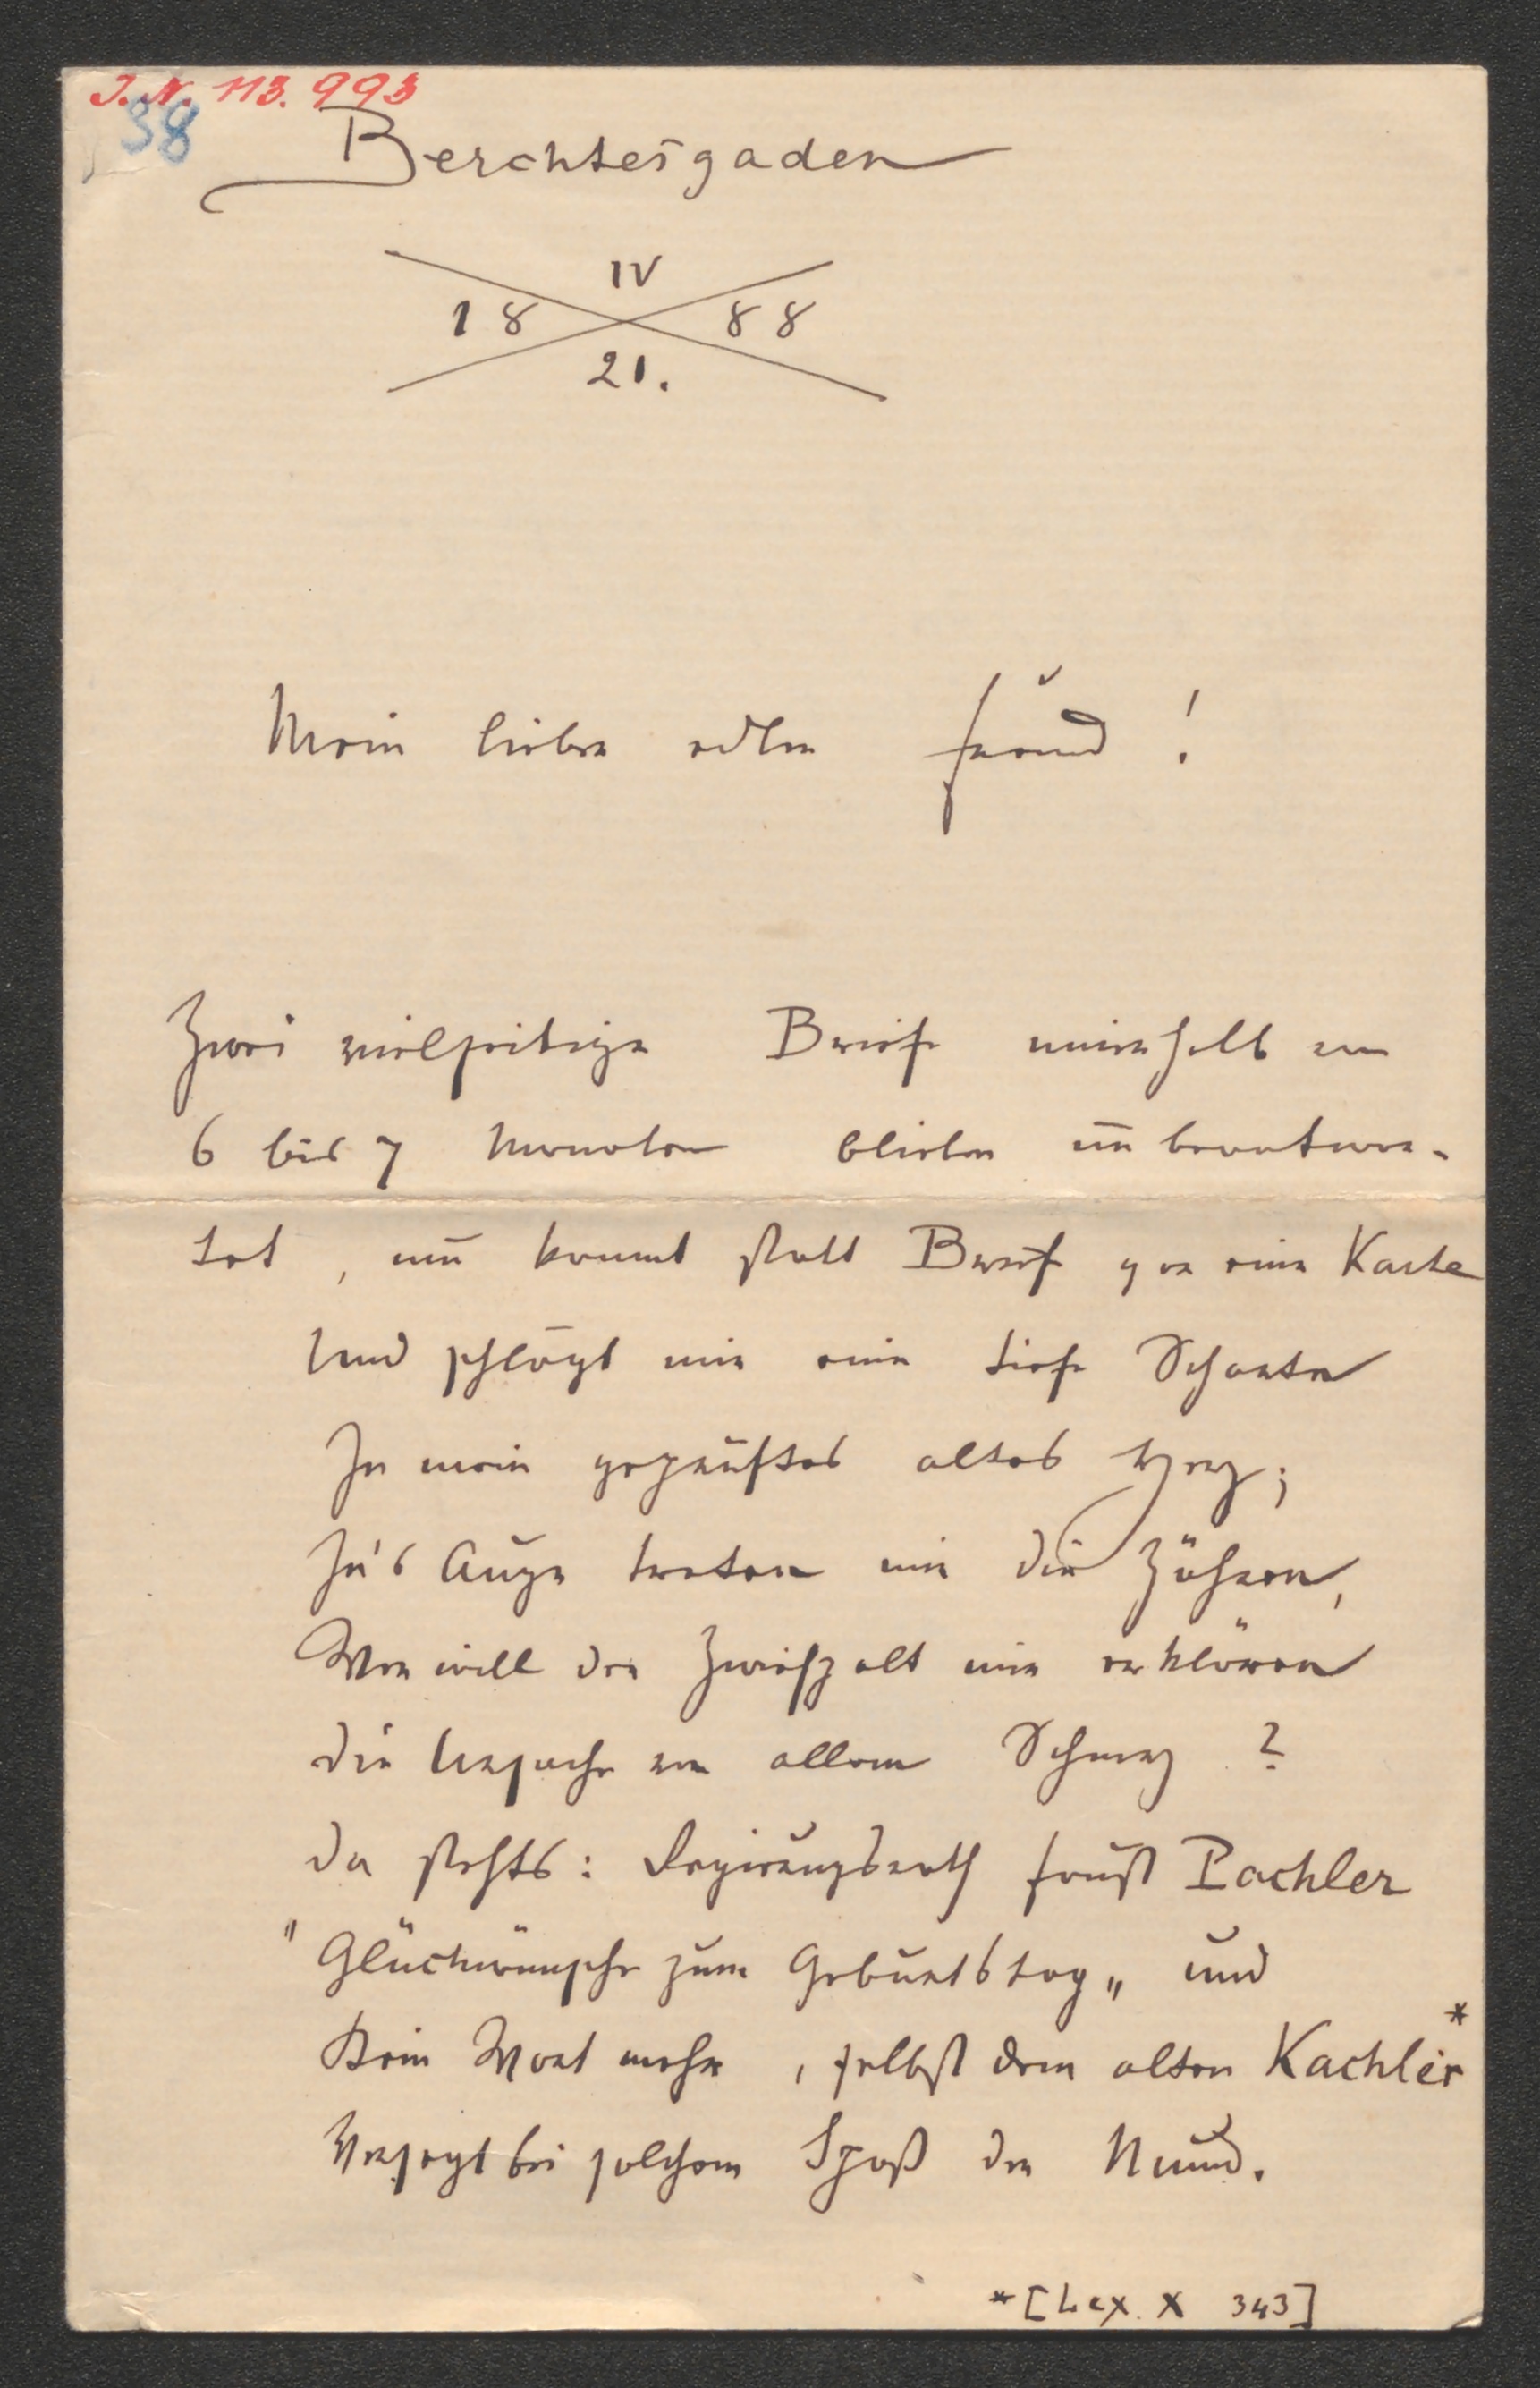 J. N. 113.993
38
Berchtesgaden
IV
18 88
21.
Mein lieber edler Freund!
Zwei vielseitige Briefe innerhalb von
6 bis 7 Monaten blieben unbeantwor-
tet, nun kommt statt Brief gar eine Karte
Und schlägt mir eine tiefe Scharte
In mein geprüftes altes Herz;
In's Auge treten mir die Zähren,
Wer will den Zwiespalt mir erklären
Die Ursache von allem Schmerz?
Da stehts: Regierungsrath Faust Pachler
"Glückwünsche zum Geburtstag„ und
Kein Wort mehr, selbst dem alten Kachler*
Versagt bei solchem Spaß der Mund.
*[Lex. X 343]